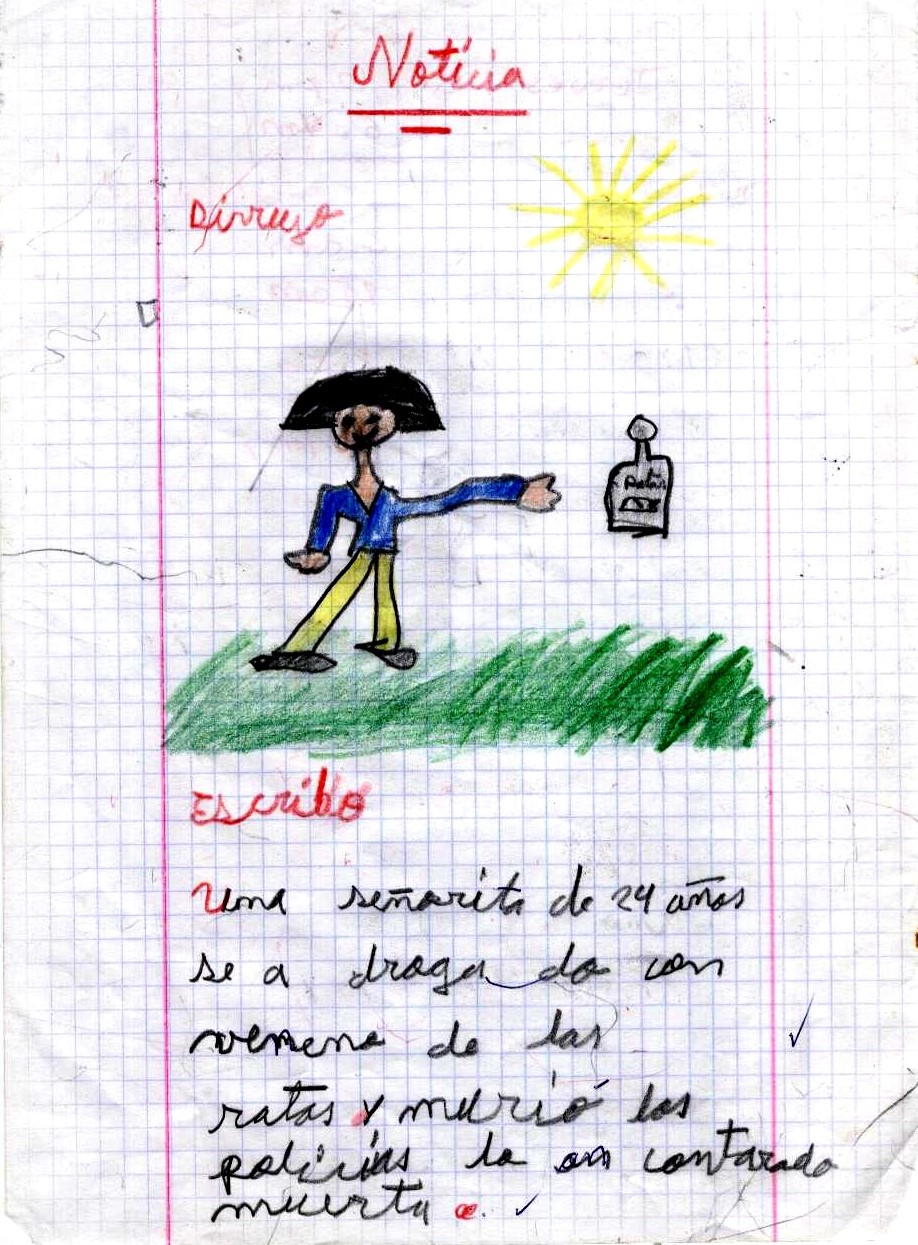 Noticia
Dirrugo
Escribo
Una señorita de 24 años
se a droga do con
veneno de las
ratas y murió los
policías la an contarado
muerta.